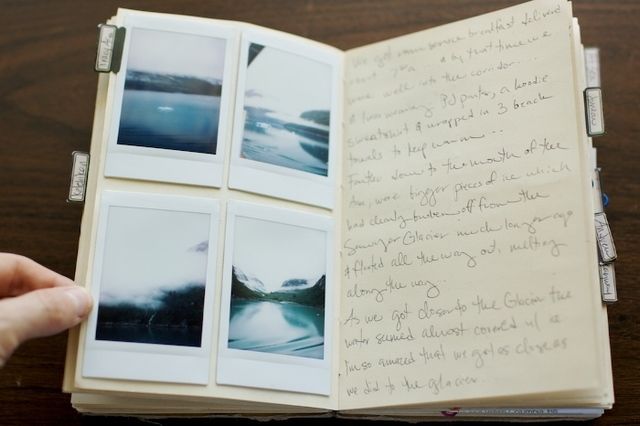 We got room service breakfast delivered
about 7ish... & by that time we
were well into the corridor...
I was wearing PJ pants, a hoodie
sweatshirt & wrapped in 3 beach
towels to keep warm...
Farther down to the mouth of the
Arm, were bigger pieces of ice which
had clearly broken off from the
Sawyer Glacier much longer ago
& floated all the way out, melting
along the way.
As we got closer to the Glacier the
water seemed almost covered w/ ice
I'm so amazed that we got as close as
we did to the glacier...